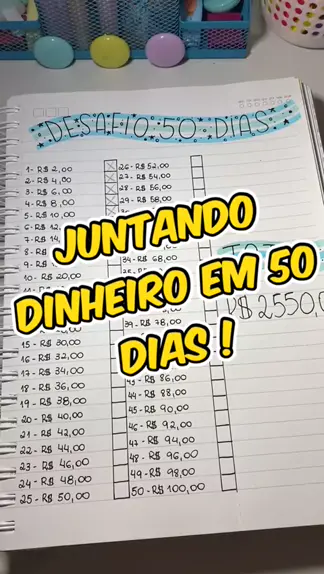 DESAFIO 50 DIAS
1- R$ 2,00
2- R$ 4,00
3- R$ 6,00
4- R$ 8,00
5- R$ 10,00
6- R$ 12,
7- R$ 14,
8- R$
9- R$
10- R$ 20,00
15- R$ 30,00
16- R$ 32,00
17- R$ 34,00
18- R$ 36,00
19- R$ 38,00
20- R$ 40,00
21- R$ 42,00
22- R$ 44,00
23- R$ 46,00
24- R$ 48,00
25- R$ 50,00
26- R$ 52,00
27- R$ 54,00
28- R$ 56,00
29- R$ 58,00
34- R$ 68,00
39- R$ 78,00
43- R$ 86,00
44- R$ 88,00
45- R$ 90,00
46- R$ 92,00
47- R$ 94,00
48- R$ 96,00
49- R$ 98,00
50- R$ 100,00
R$ 2550,0
JUNTANDO
DINHEIRO EM 50
DIAS !